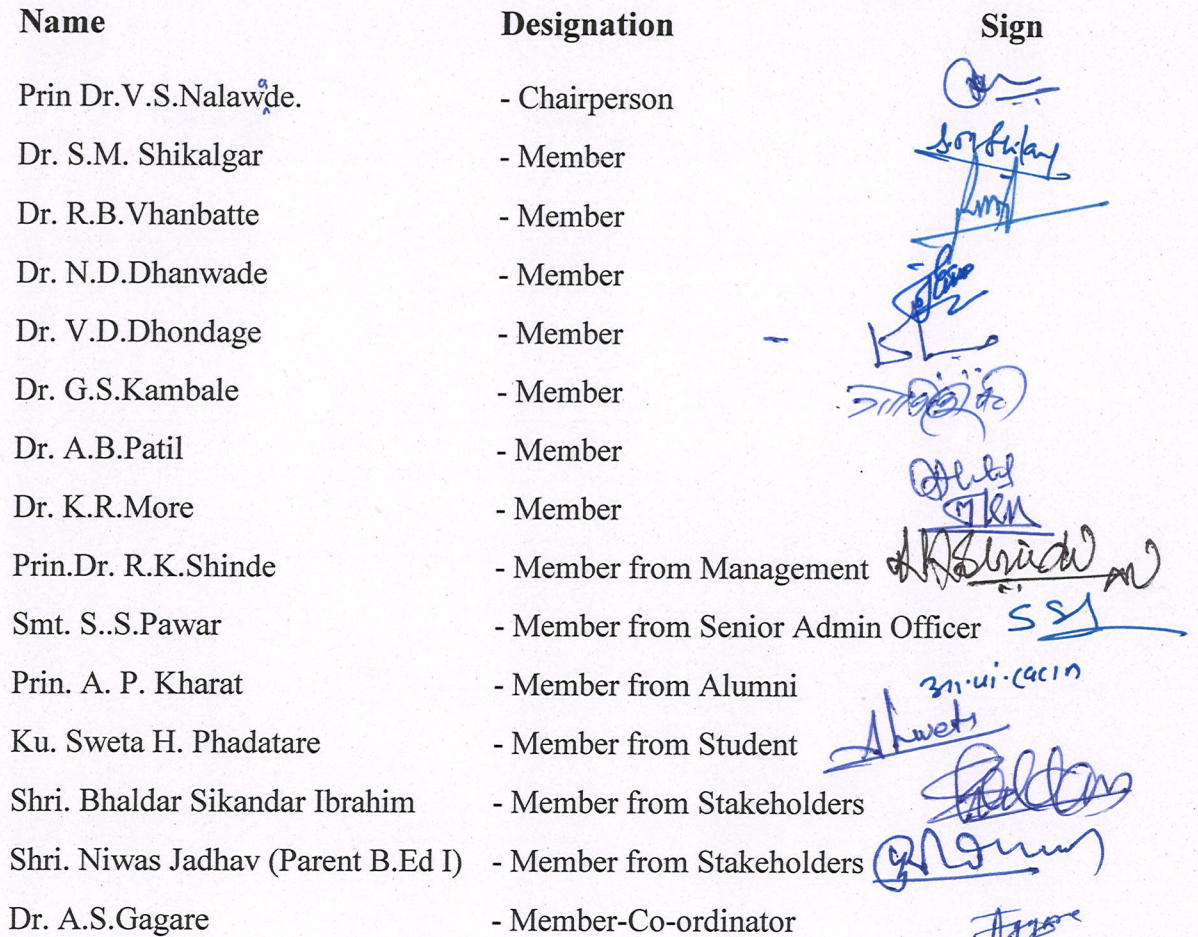 Name Designation Sign
Prin Dr.V.S.Nalawade. - Chairperson
Dr. S.M. Shikalgar - Member
Dr. R.B.Vhanbatte - Member
Dr. N.D.Dhanwade - Member
Dr. V.D.Dhondage - Member -
Dr. G.S.Kambale - Member
Dr. A.B.Patil - Member
Dr. K.R.More - Member
Prin.Dr. R.K.Shinde - Member from Management
Smt. S..S.Pawar - Member from Senior Admin Officer
Prin. A. P. Kharat - Member from Alumni
Ku. Sweta H. Phadatare - Member from Student
Shri. Bhaldar Sikandar Ibrahim - Member from Stakeholders
Shri. Niwas Jadhav (Parent B.Ed I) - Member from Stakeholders
Dr. A.S.Gagare - Member-Co-ordinator